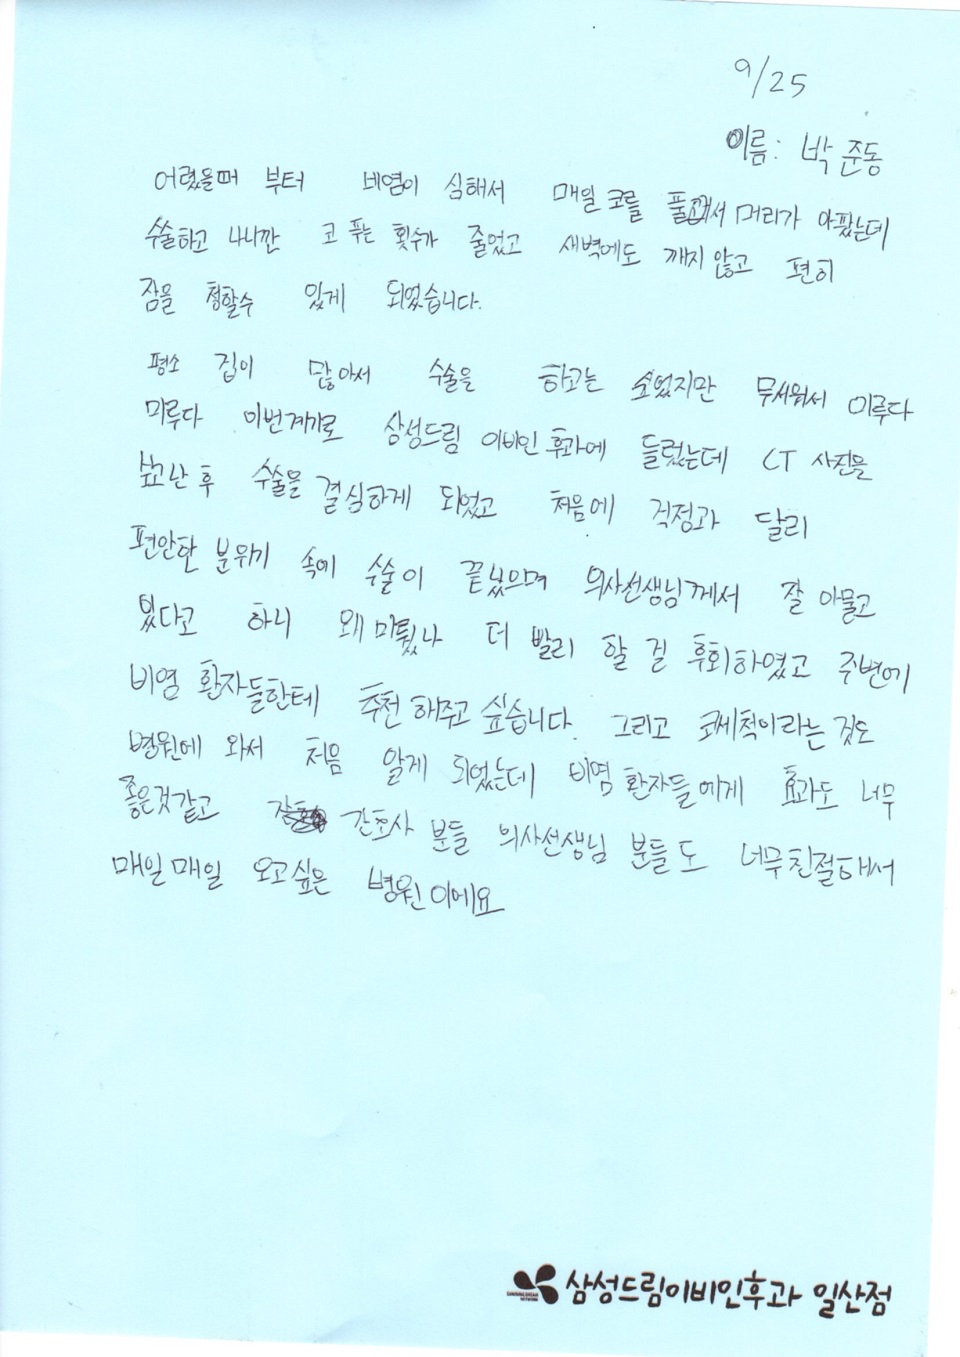 9/25
이름: 박준동
어렸을때 부터 비염이 심해서 매일 코를 풀어서 머리가 아팠는데
수술하고 나니깐 코 푸는 횟수가 줄었고 새벽에도 깨지 않고 편히
잠을 청할수 있게 되었습니다.
평소 겁이 많아서 수술을 하고는 싶었지만 무서워서 미루다
미루다 이번계기로 삼성드림 이비인후과에 들렸는데 CT 사진을
찍고난 후 수술을 결심하게 되었고 처음에 걱정과 달리
편안한 분위기 속에 수술이 끝났으며 의사선생님께서 잘 아물고
있다고 하니 왜 미뤘나 더 빨리 할 걸 후회하였고 주변에
비염 환자들한테 추천해주고 싶습니다. 그리고 코세척이라는 것도
병원에 와서 처음 알게 되었는데 비염 환자들에게 효과도 너무
좋은것같고 간호사 분들 의사선생님 분들도 너무친절해서
매일매일 오고싶은 병원이에요
삼성드림이비인후과 일산점